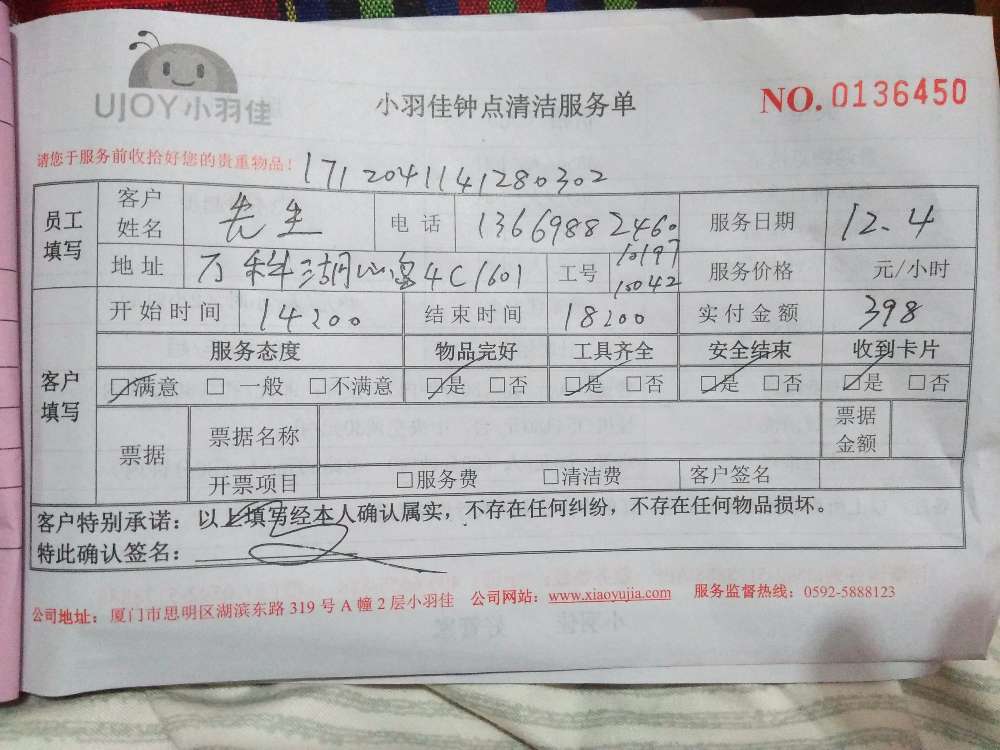 UJOY小羽佳
小羽佳钟点清洁服务单
NO. 0136450
请您于服务前收拾好您的贵重物品!
1712041141280302
员工填写 客户姓名 先生 电话 13669882460 服务日期 12.4
地址 万科湖心岛4C1601 工号 10197 10042 服务价格 元/小时
客户填写 开始时间 14:00 结束时间 18:00 实付金额 398
服务态度 物品完好 工具齐全 安全结束 收到卡片
☑满意 □一般 □不满意 ☑是 □否 ☑是 □否 ☑是 □否 ☑是 □否
票据 票据名称 票据金额
开票项目 □服务费 □清洁费 客户签名
客户特别承诺：以上填写经本人确认属实，不存在任何纠纷，不存在任何物品损坏。
特此确认签名：
公司地址：厦门市思明区湖滨东路 319 号 A 幢 2 层小羽佳 公司网站：www.xiaoyujia.com 服务监督热线：0592-5888123